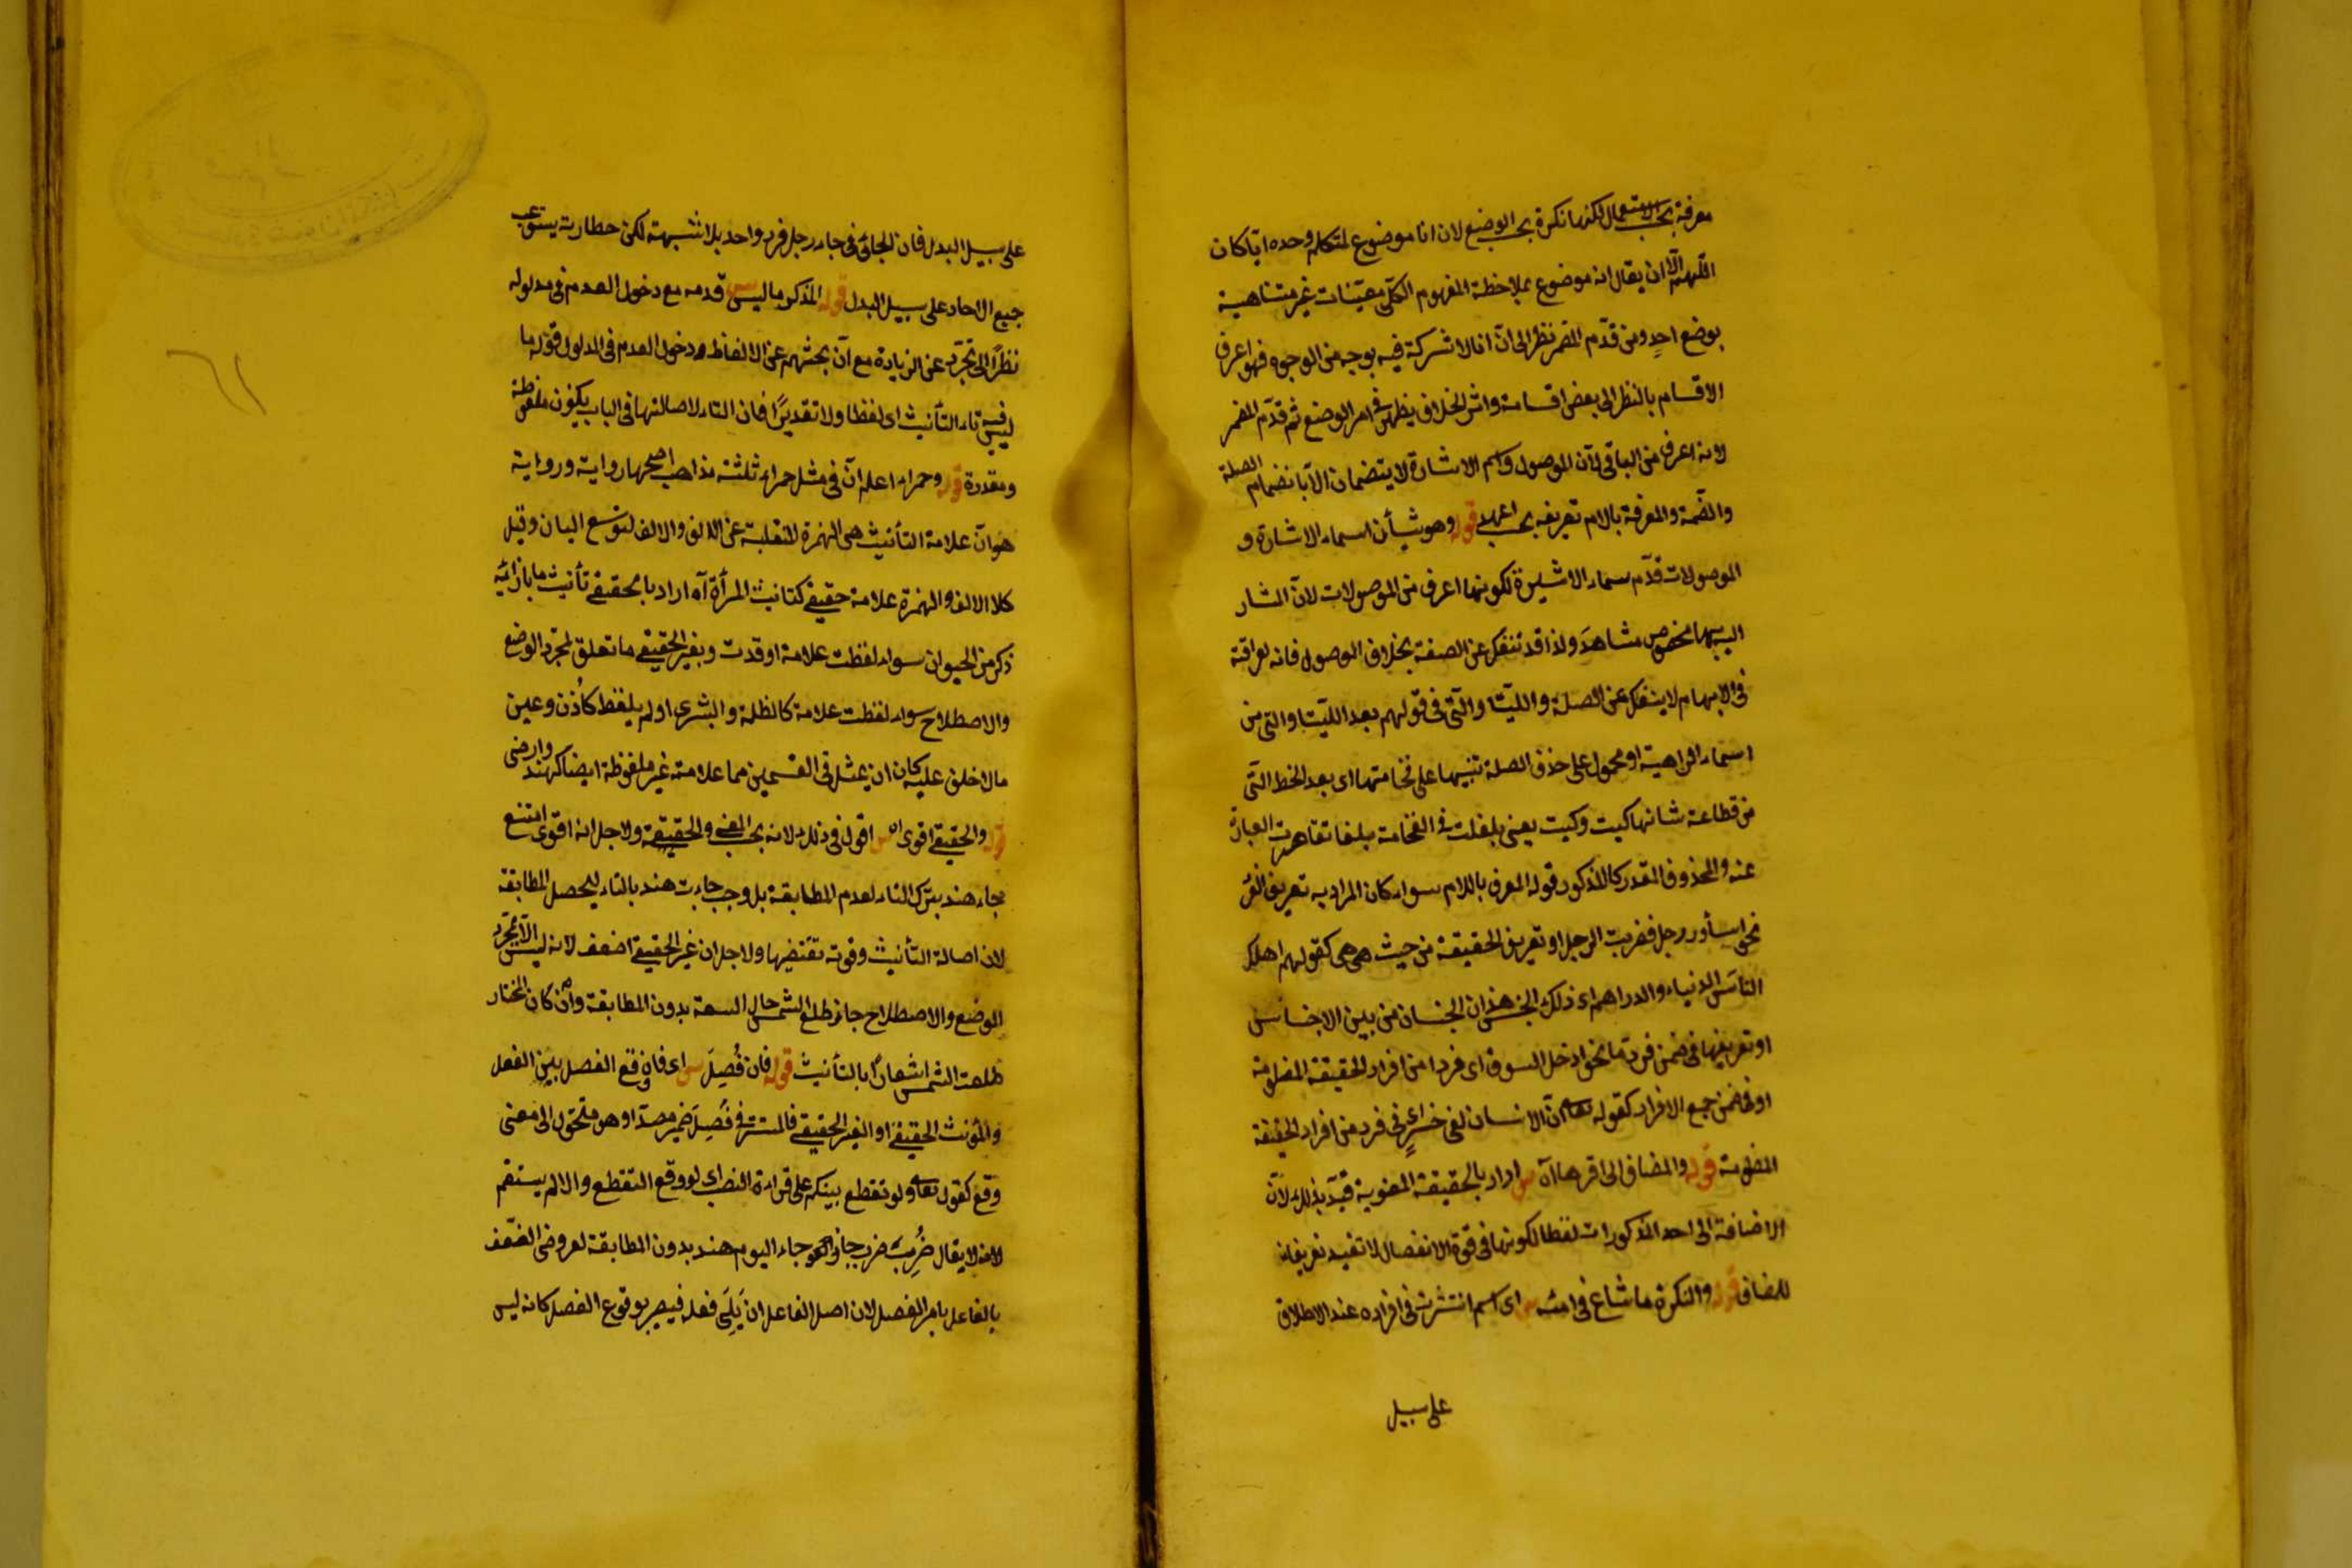 معرفة بحسب الاستعمال لكنها نكرة بحسب الوضع لان انا موضوع لمتكلم وحده ايّا كان
اللّهم الّا ان يقال انه موضوع بملاحظة المفهوم الكلّى معيّنات غير متناهية
بوضع احدٍ ومن قدّم المضمر نظر الى انّ انا لا شركة فيه بوجه من الوجوه فهو اعرف
الاقسام بالنظر الى بعض اقسامه واثر الخلاف يظهر فى امر الوضع ثم قدّم المضمر
لانه اعرف من الباقى لانّ الموصول واسم الاشارة لا يتضمان الّا بانضمام الصلة
والصّفة والمعرفة بالام تعريفه بحسب قوله وهو شيأن اسماء الاشارة و
الموصولات قدّم اسماء الاشارة لكونها اعرف من الموصولات لانّ المشار
اليه بها مخصوص مشاهدَ ولذا قد تنفك عن الصفة بخلاف الموصول فانه لعراقته
فى الابهام لا ينفك عن الصلة واللتيّا والّتى فى قولهم بعد اللتيّا والتى من
اسماء الداهية او محمول على حذف الصلة تنبيها على فخامتها اى بعد الخطه الّتى
من فظاعة شانها كيت وكيت يعنى بلغت فى الفخامة مبلغا تقاصرت العبارة
عنه والمحذوف المقدر كالمذكور قوله المعرف باللام سواء كان المراد به تعريف الفرد
نحو رجل فضربت الرجل او تعريف الحقيقة من حيث هى هى كقولهم اهلك
الناسَ الدنياء والدراهم اى ذلك الجنس هذان الجنسان من بين الاجناس
او تعريفها فى ضمن فرد مّا نحو ادخل السوق اى فردا من افراد الحقيقة المعلومة
او فى ضمن جميع الافراد كقوله تعالى انّ الانسان لفى خسر اى فى فرد من افراد الحقيقة
المعلومة قوله والمضاف الى اقرها آه س اراد بالحقيقة المعنوية قيّد بذلك لانّ
الاضافة الى احد المذكورات لفظا لكونها فى قوة الانفصال لا تفيد تعريفا
للمضاف قوله والنكرة ما شاع فى امته س اى اسم انتشرت فى افراده عند الاطلاق
على سبيل
على سبيل البدل فان الجائى فى جاء رجل فرد واحد بلا شبهة لكن يستوعب
جميع الاحاد على سبيل البدل قوله المذكر ما ليس س قدمه مع دخول العدم فى مدلوله
نظرًا الى تجرّده عن الزيادة مع انّ بحثهم عن الالفاظ ودخول العدم فى المدلول قوله ما
ليس فيه تاء التأنيث اى لفظا ولا تقديرًا فان التاء لاصالتها فى الباب يكون ملفوظة
ومقدرة قوله وحمراء اعلم انّ فى مثل حمراء ثلثة مذاهب اصحّها رواية ورواية
هو انّ علامة التأنيث هى الهمزة المنقلبة عن الالف والالف لتوسع البيان وقيل
كلا الالف والهمزة علامة حقيقى كتانيث المرأة آه اراد بالحقيقى تأنيث ما بازائه
ذكر من الحيوان سواء لفظت علامة او قدت وبغير الحقيقى ما تعلق لمجرّد الوضع
والاصطلاح سواء لفظت علامة كالظلمة والبشرى او لم يلفظ كاُذن وعين
مالا خلف عليه كان ان يمثل فى القسمين مما علامته غير ملفوظة ايضا كهند وارض
قوله والحقيقى اقوى آه س اقول فى ذلك لانه بحسب المعنى والحقيقة ولاجل انه اقوى امتنع
جاء هند بترك التاء لعدم المطابقة بل وجب جاءت هند بالتاء ليحصل المطابقة
لان اصالة التأنيث وقوته تقتضيها ولاجل ان غير الحقيقى اضعف لانه ليس الّا بمجرّد
الوضع والاصطلاح جاز طلع الشمس حال السعة بدون المطابقة وان كان المختار
طلعت الشمس اشعارًا بالتأنيث قوله فان فُصِلَ س اى فان وقع الفصل بين الفعل
والمؤنث الحقيقى او الغير الحقيقى فالمستتر فى فُصِلَ ضمير مصدر او هو متحوّل الى معنى
وقع كقوله تعالى ولو تقطع بينكم على قراءة النصب اى لو وقع التقطع والا لم يستقم
لانه لا يقال ضُرِبَ ضرب جاز نحو جاء اليوم هند بدون المطابقة لعروض الضّعف
بالفاعل بامر الفصل لان اصل الفاعل ان يَلِىَ فعله فيصير بوقوع الفصل كانه ليس